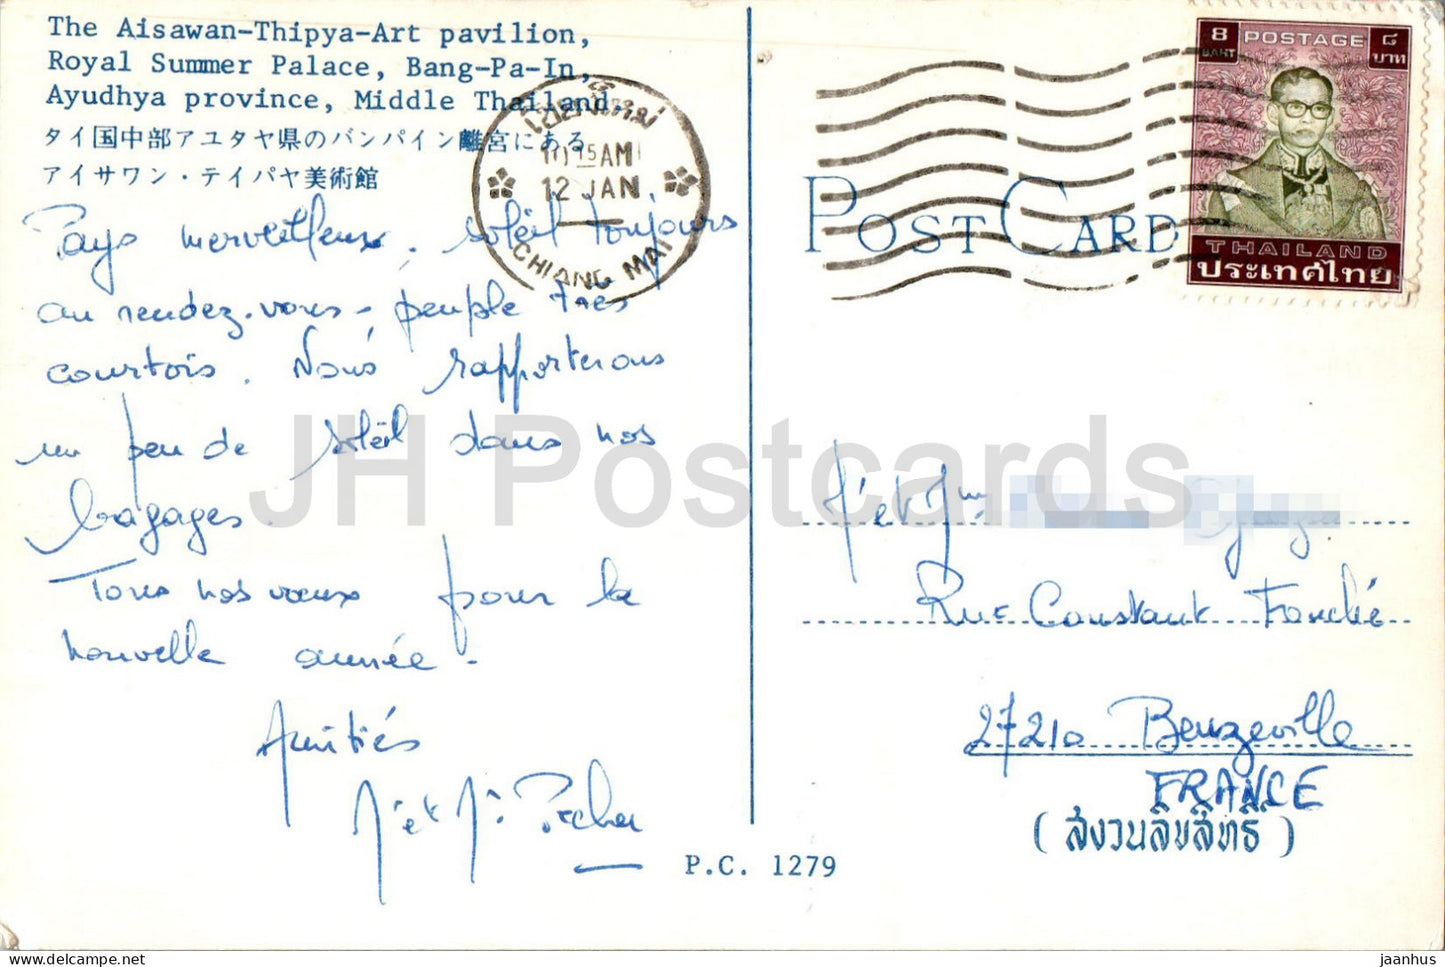 The Aisawan-Thipya-Art pavilion,
Royal Summer Palace, Bang-Pa-In,
Ayudhya province, Middle Thailand.
タイ国中部アユタヤ県のバンパイン離宮にある
アイサワン・テイパヤ美術館
Pays merveilleux, soleil toujours
au rendez-vous - peuple très
courtois. Nous rapporterons
un peu de soleil dans nos
bagages.
Tous nos vœux pour la
nouvelle année.
Amitiés
เชียงใหม่
10 15 AM
12 JAN
CHIANG MAI
POST CARD
8 POSTAGE ๘
BAHT บาท
THAILAND
ประเทศไทย
JH Postcards
Rue Constant Fouché
27210 Beuzeville
FRANCE
(สงวนลิขสิทธิ์)
P.C. 1279
jaanhus